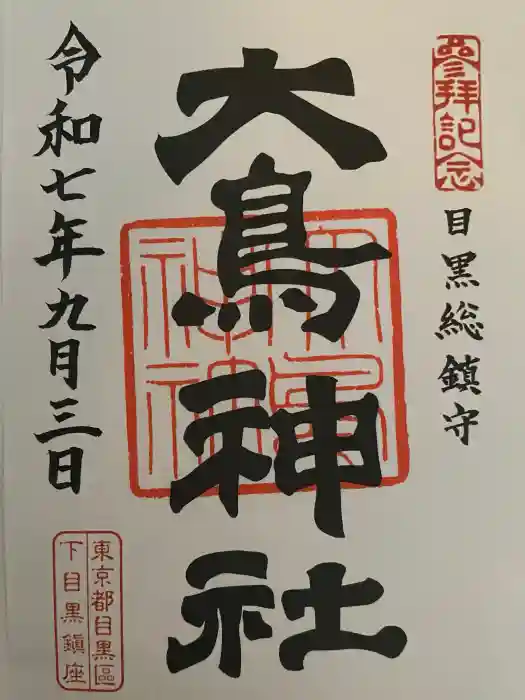 參拜記念
目黒総鎮守
大鳥神社
令和七年九月三日
東京都目黒區
下目黒鎮座